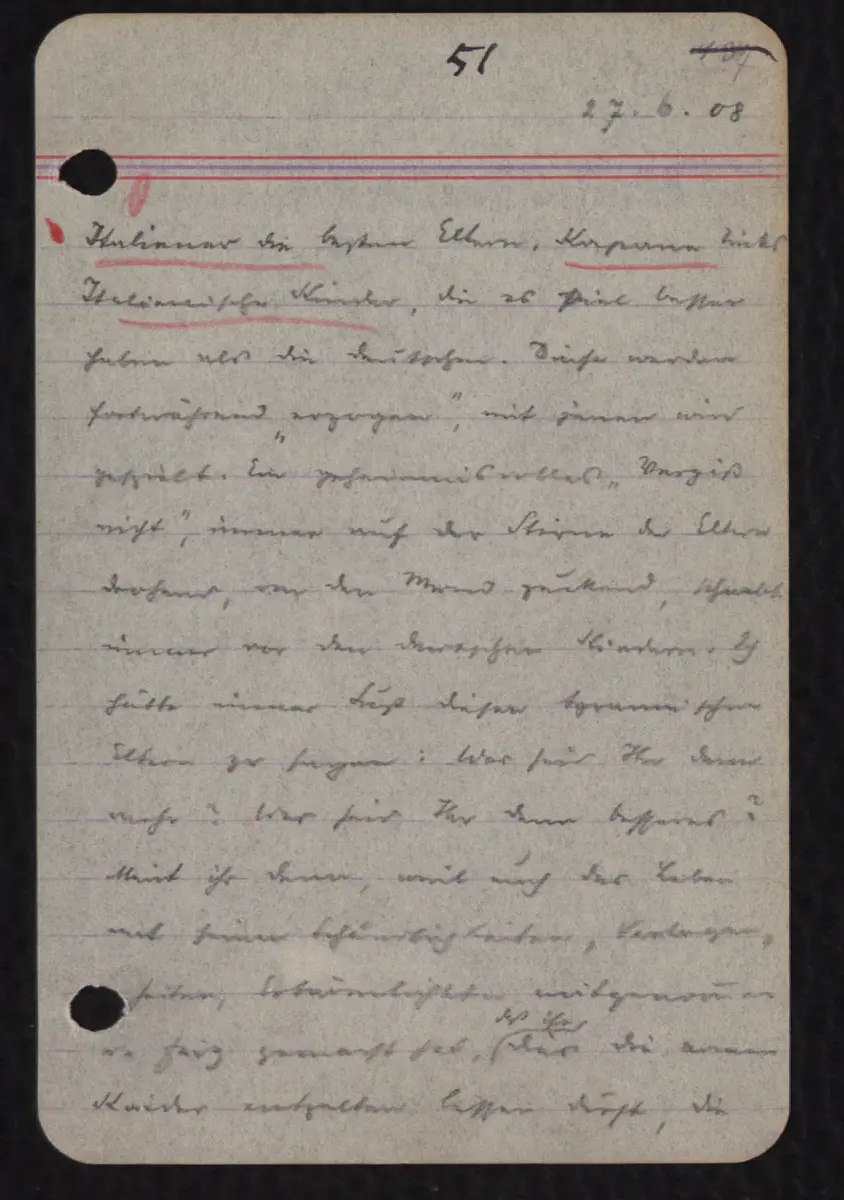 51
137
27. 6. 08
Italiener die besten Eltern.
Italienische Kinder, die es viel besser
haben als die deutschen. Diese werden
fortwährend „erzogen“, mit jenen wird
gespielt. Ein geheimnisvolles „Vergiß
nicht“, immer auf der Stirne der Eltern
drohend, um den Mund zuckend, schwebt
immer vor den deutschen Kindern. Ich
hätte immer Lust diesen tyrannischen
Eltern zu sagen: Was seid Ihr denn
mehr? Was seid Ihr denn besseres?
Meint ihr denn, weil euch das Leben
mit seinen Verlogen-
heiten, Erbärmlichkeiten mitgenommen
gemacht hat, daß ihr das die armen
Kinder entgelten lassen dürft, die